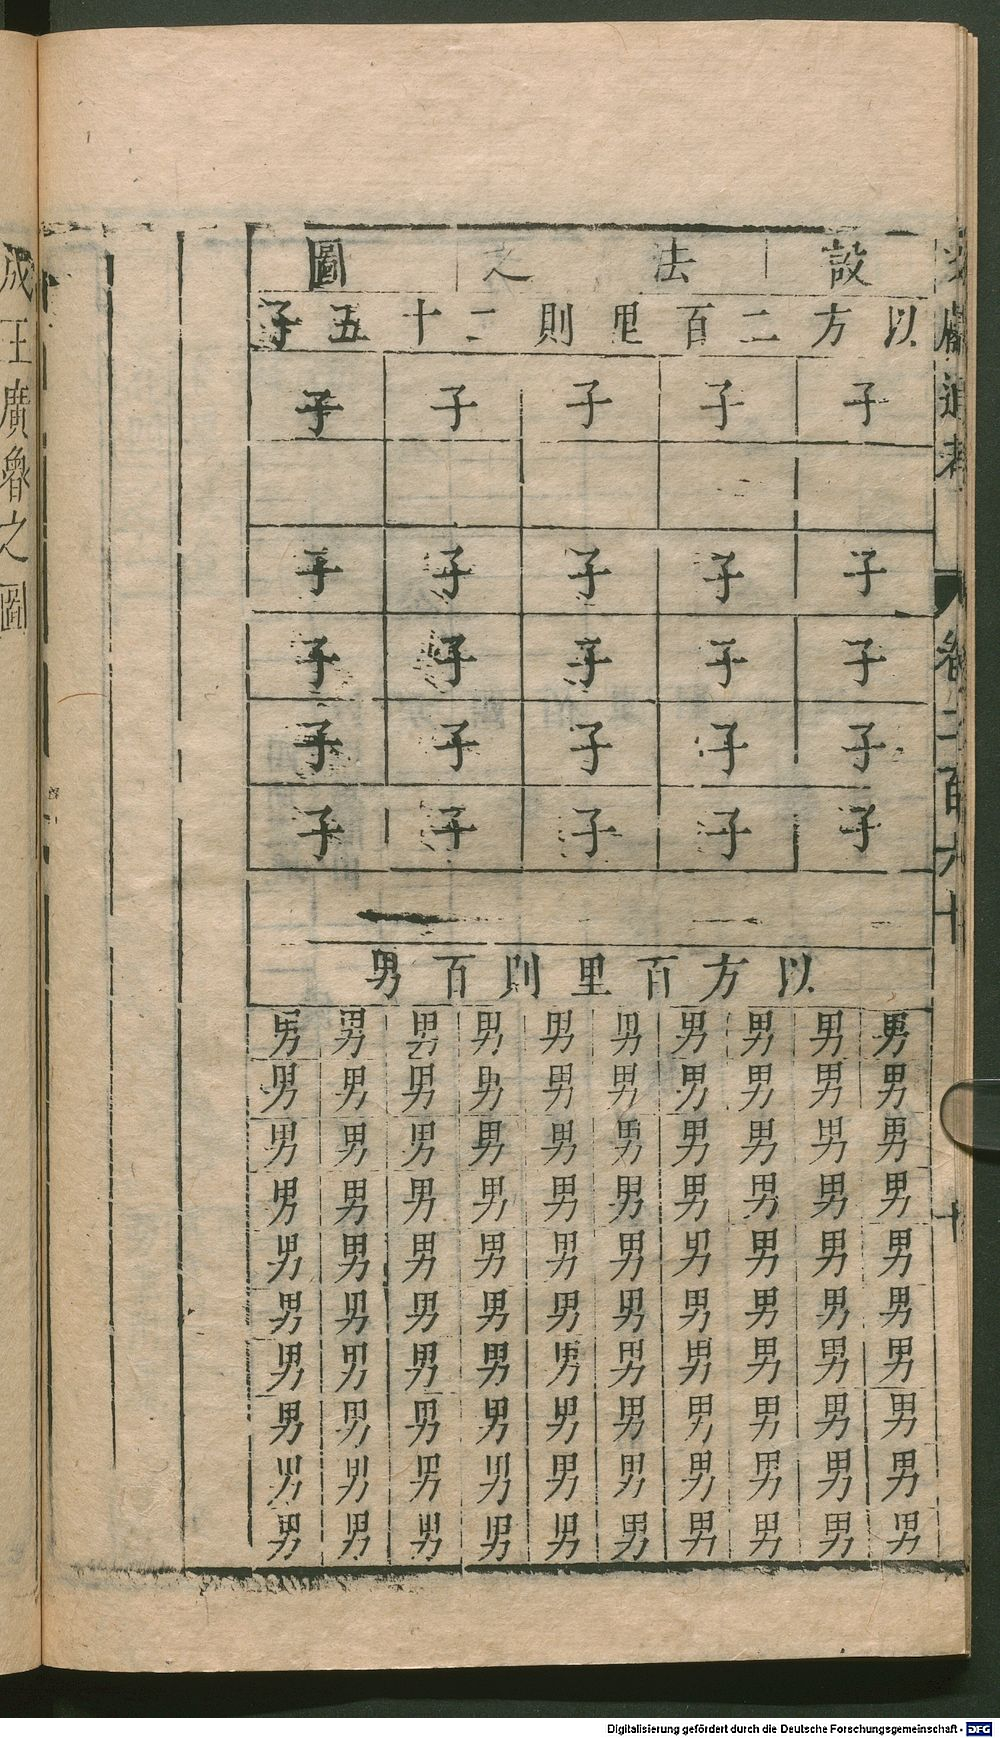 設法之圖
以方二百里則二十五子
子子子子子
子子子子子
子子子子子
子子子子子
子子子子子
以方百里則百男
男男男男男男男男男男
男男男男男男男男男男
男男男男男男男男男男
男男男男男男男男男男
男男男男男男男男男男
男男男男男男男男男男
男男男男男男男男男男
男男男男男男男男男男
男男男男男男男男男男
男男男男男男男男男男
卷二百六十
十
成王廣魯之圖
Digitalisierung gefördert durch die Deutsche Forschungsgemeinschaft - DFG